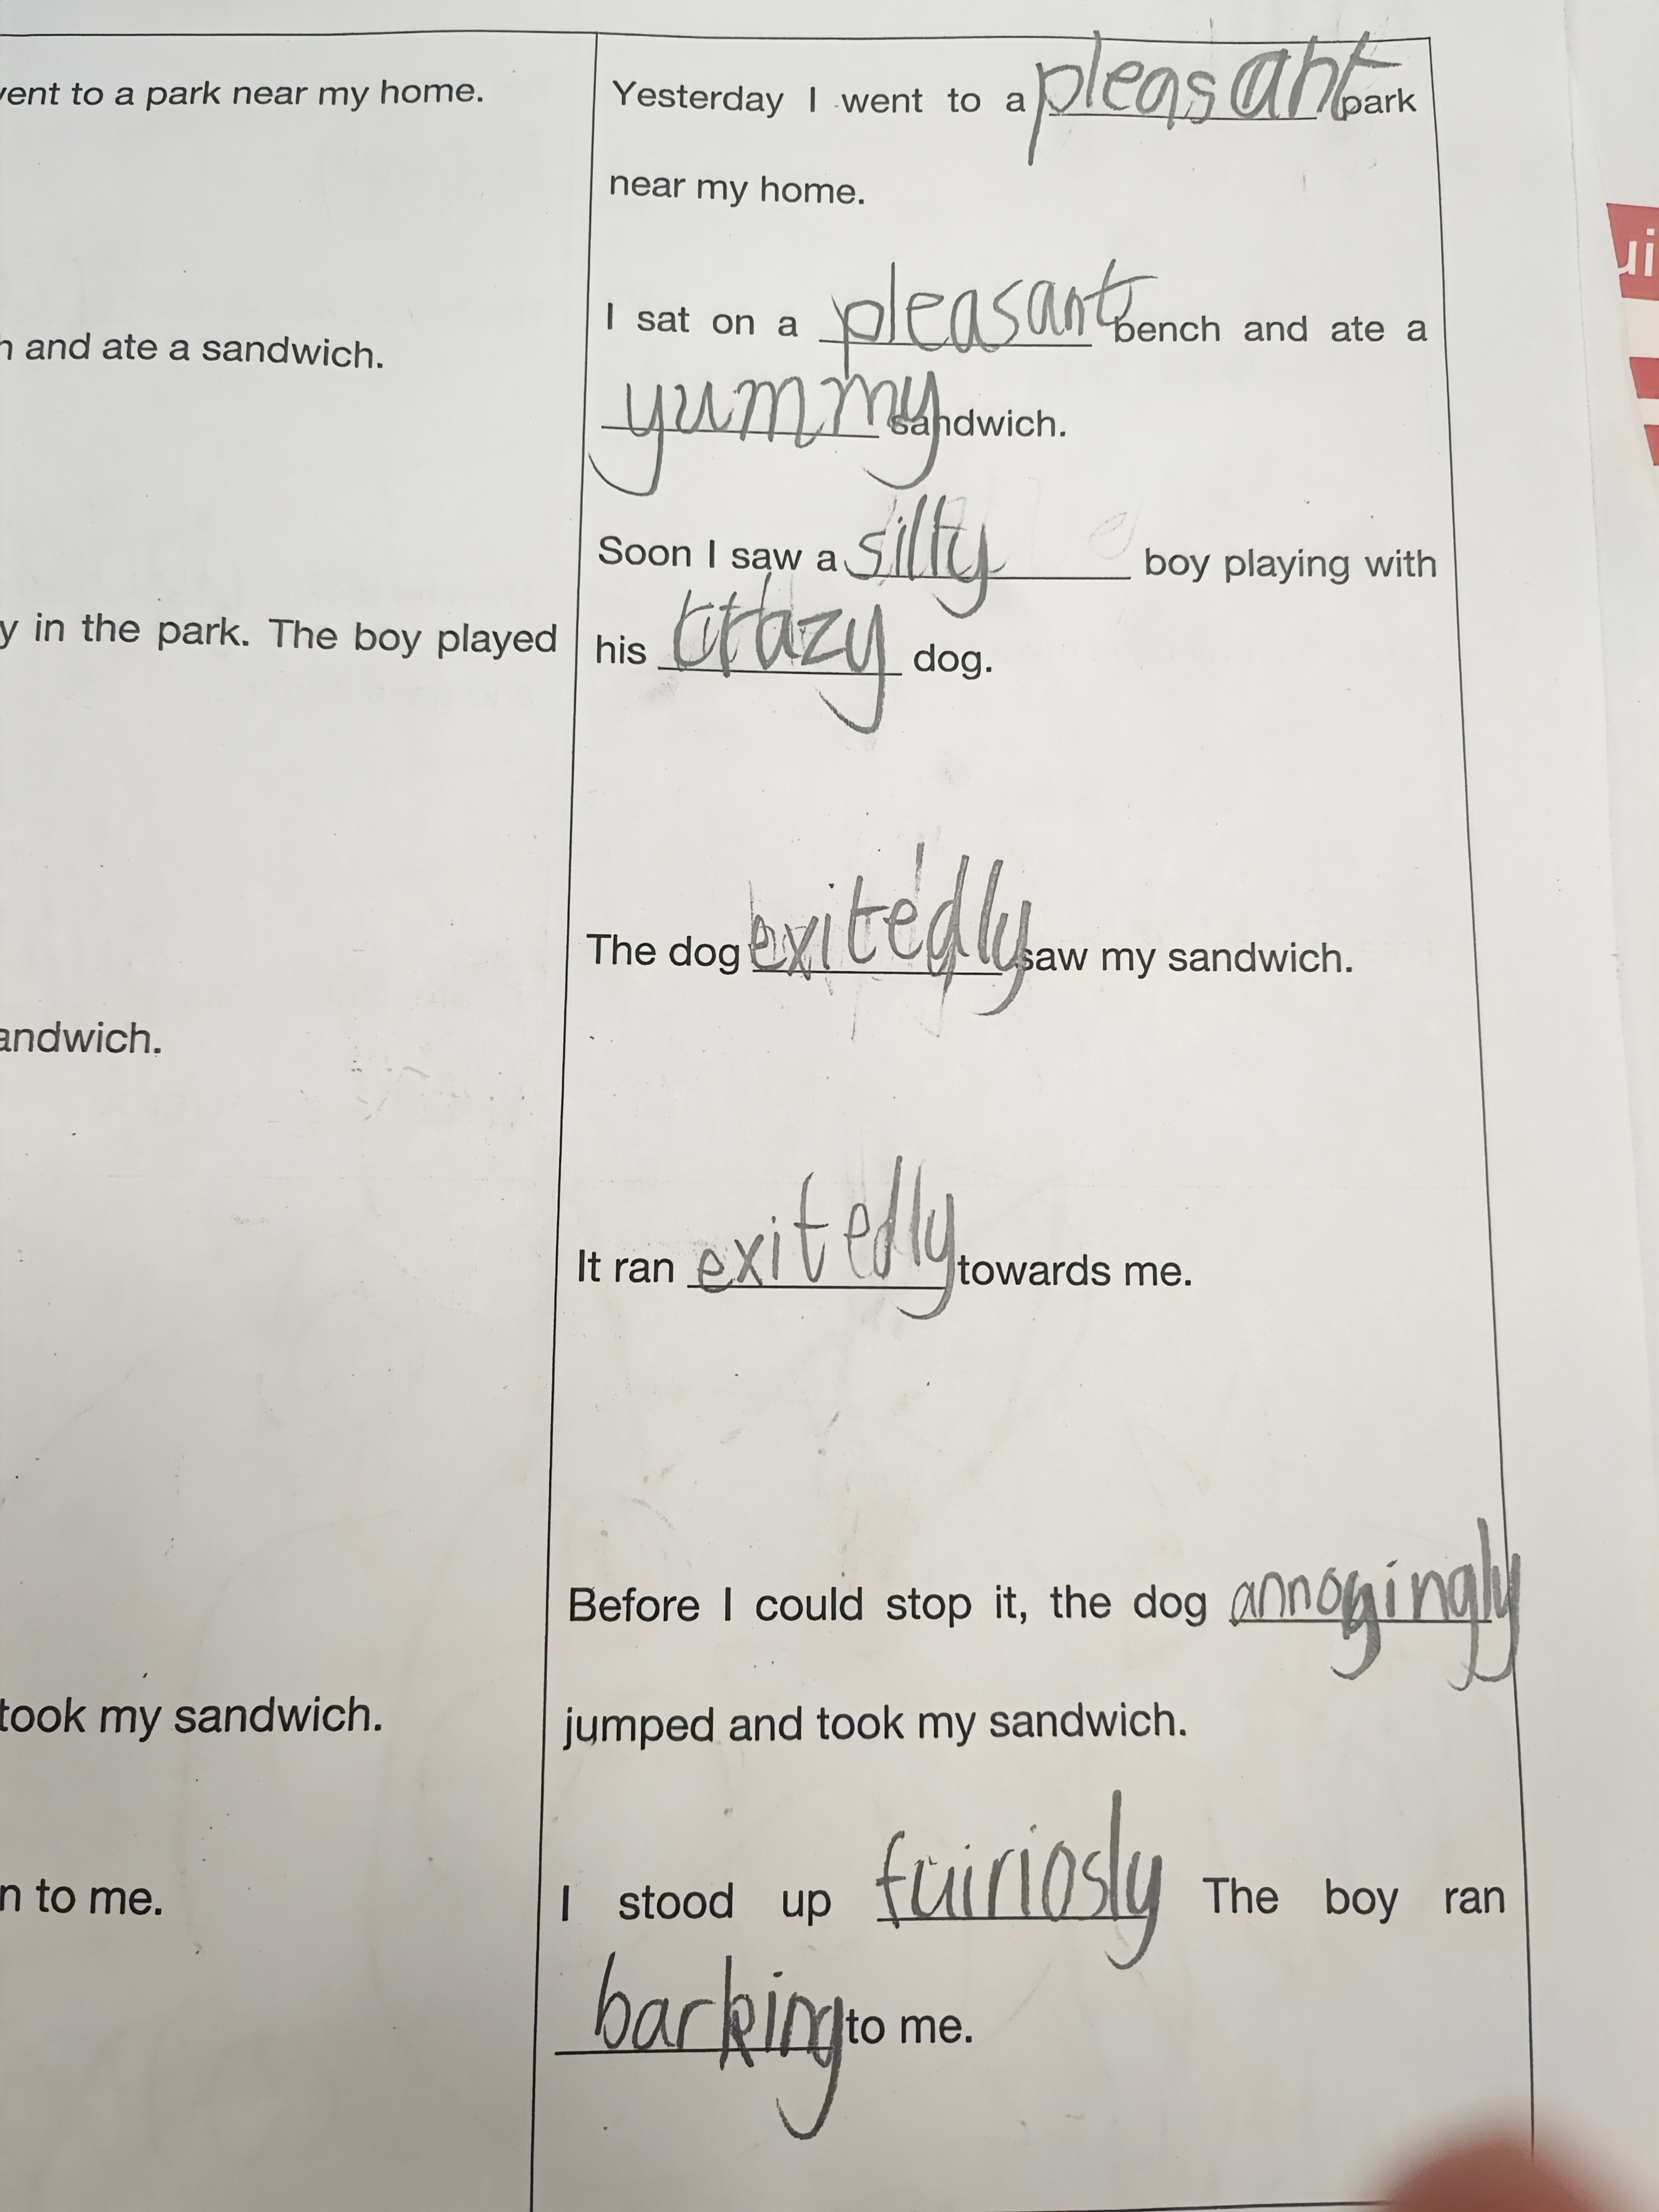 ent to a park near my home.
Yesterday I went to a pleasant park
near my home.
I sat on a pleasant bench and ate a
and ate a sandwich.
yummy sandwich.
Soon I saw a silly boy playing with
y in the park. The boy played
his crazy dog.
The dog exitedly saw my sandwich.
andwich.
It ran exitedly towards me.
Before I could stop it, the dog annoyingly
took my sandwich.
jumped and took my sandwich.
n to me.
I stood up fuiriosly The boy ran
barking to me.
ui